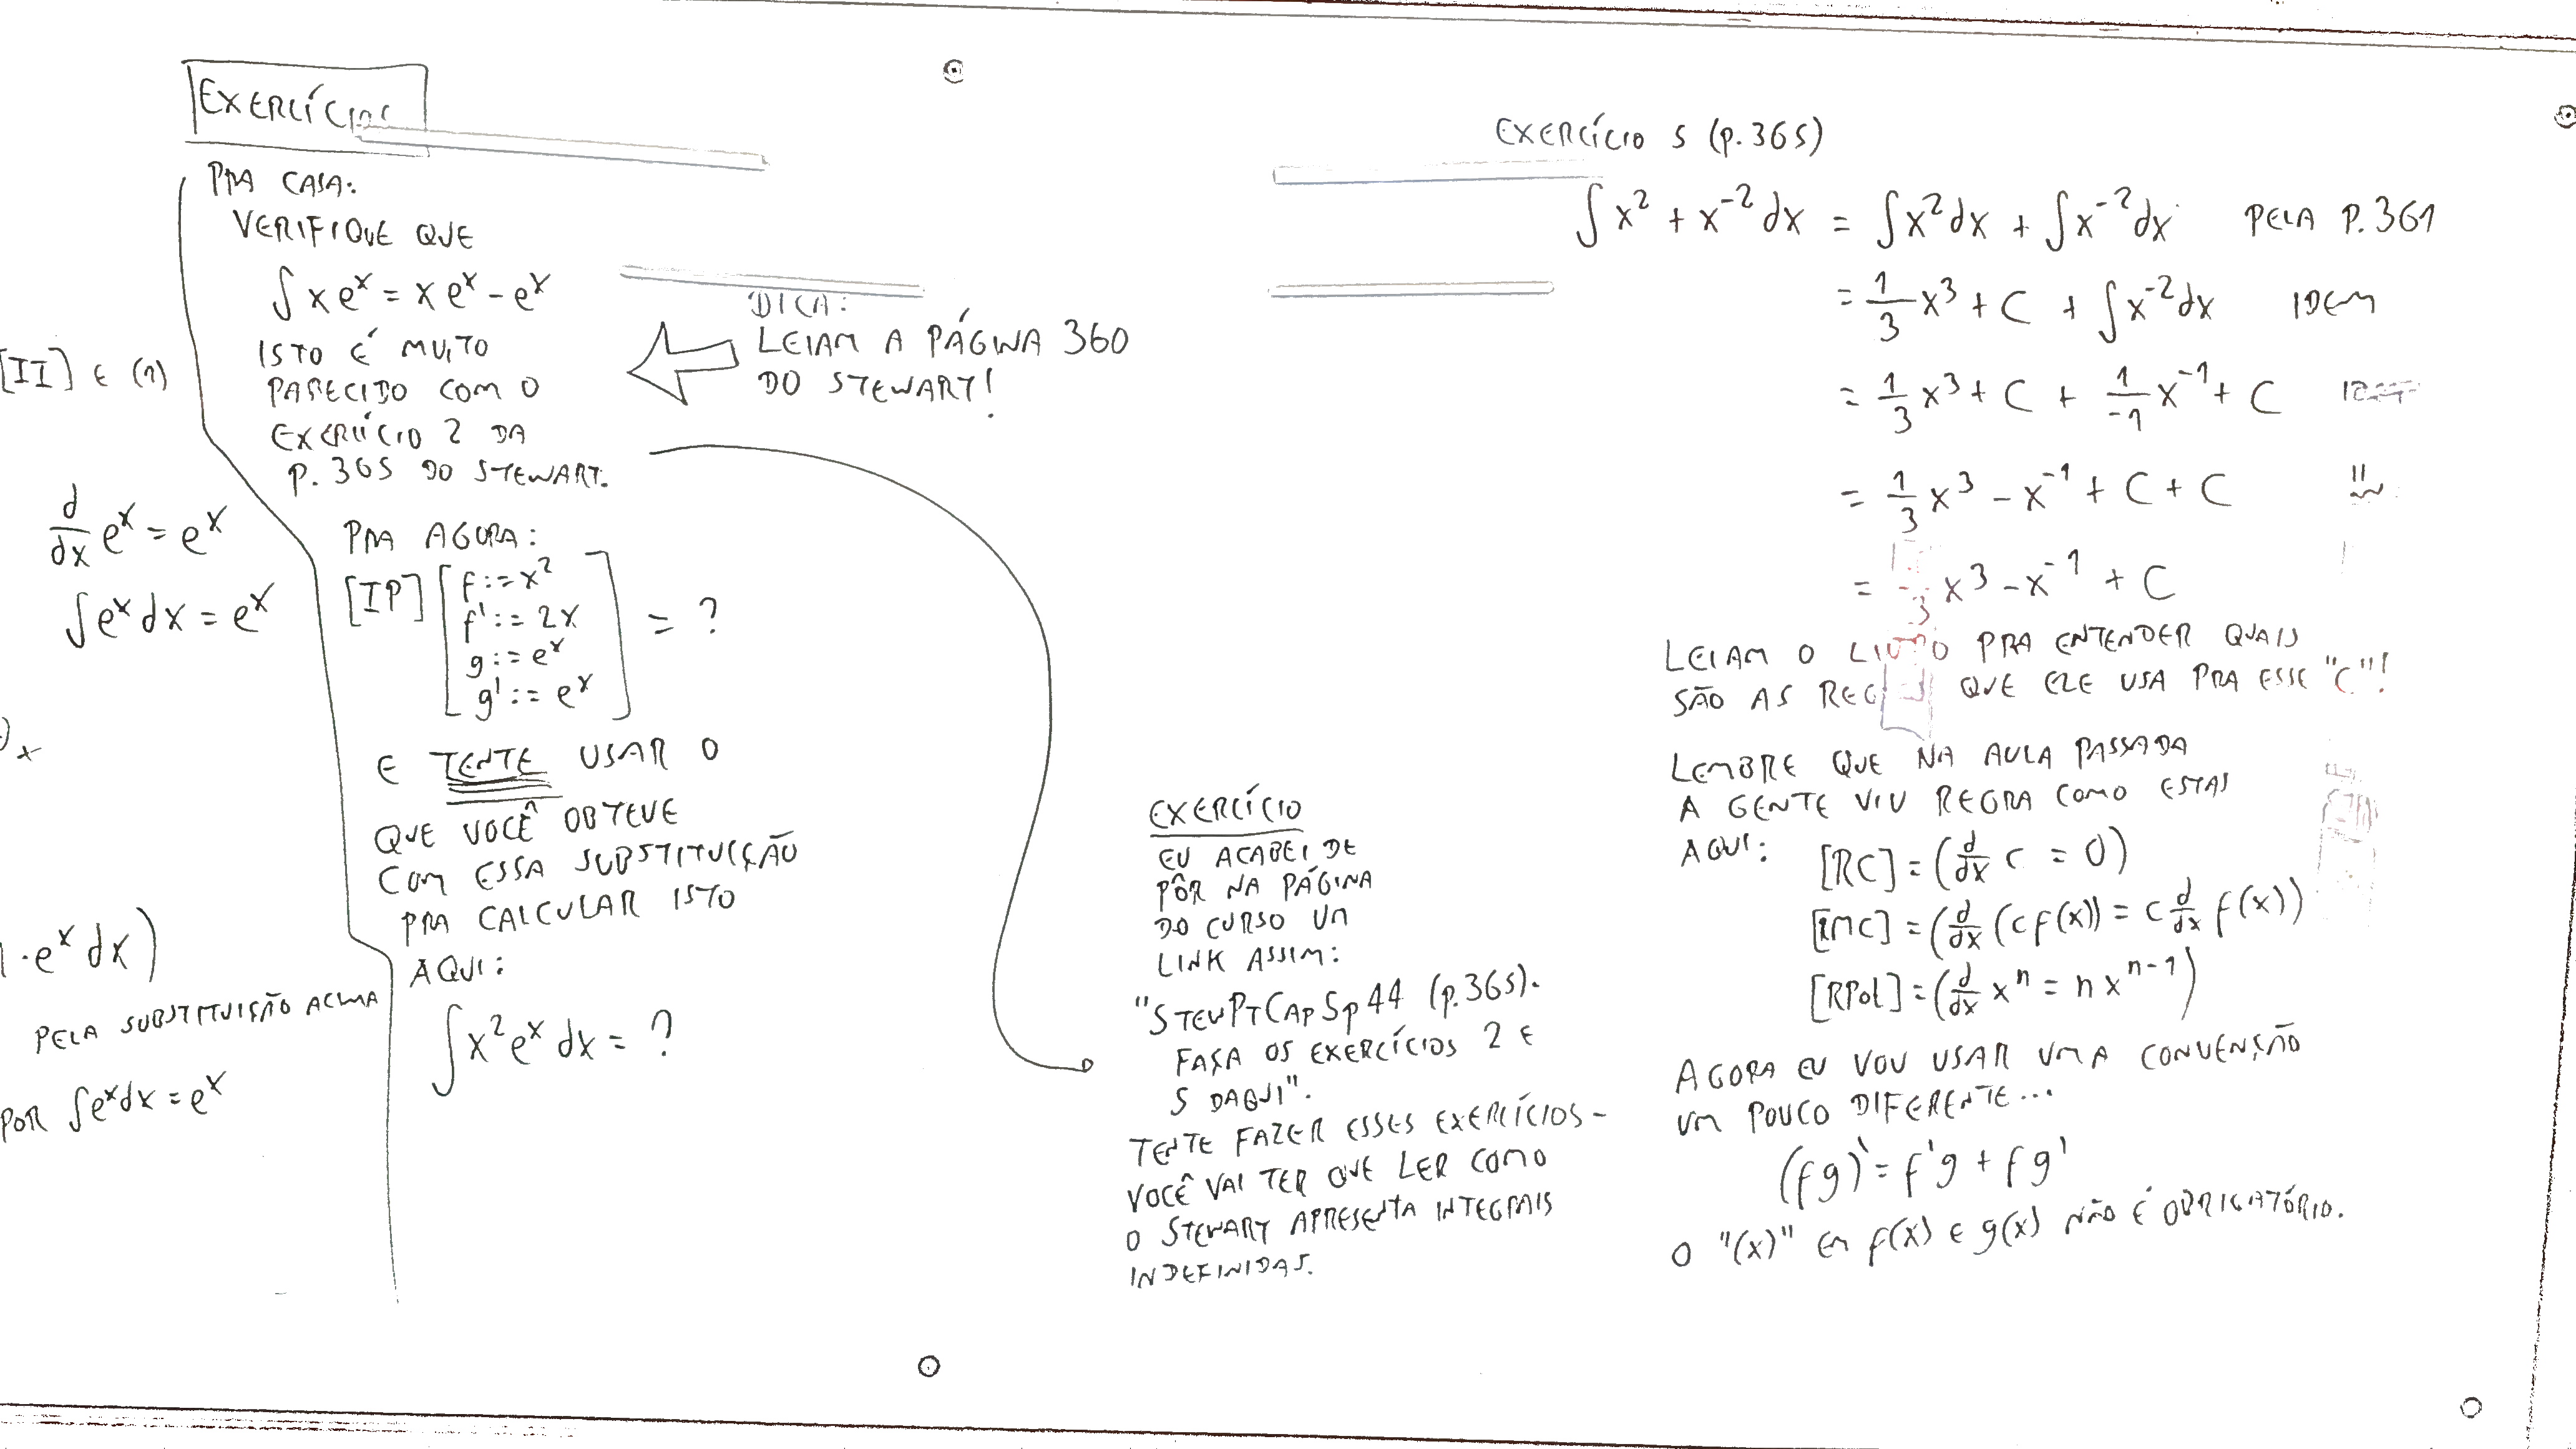 [II] E (1)
d/dx e^x = e^x
∫e^x dx = e^x
)x
· e^x dx)
PELA SUBSTITUIÇÃO ACIMA
POR ∫e^x dx = e^x
EXERCÍCIOS
PRA CASA:
VERIFIQUE QUE
∫ x e^x = x e^x - e^x
ISTO É MUITO
PARECIDO COM O
EXERCÍCIO 2 DA
P. 365 DO STEWART.
DICA:
LEIAM A PÁGINA 360
DO STEWART!
PRA AGORA:
[IP] [ f := x^2
f' := 2x
g := e^x
g' := e^x ] = ?
E TENTE USAR O
QUE VOCÊ OBTEVE
COM ESSA SUBSTITUIÇÃO
PRA CALCULAR ISTO
AQUI:
∫x^2 e^x dx = ?
EXERCÍCIO
EU ACABEI DE
PÔR NA PÁGINA
DO CURSO UM
LINK ASSIM:
"STEWPTCAP5P44 (P.365).
FAÇA OS EXERCÍCIOS 2 E
5 DAQUI".
TENTE FAZER ESSES EXERCÍCIOS -
VOCÊ VAI TER QUE LER COMO
O STEWART APRESENTA INTEGRAIS
INDEFINIDAS.
EXERCÍCIO 5 (P.365)
∫x^2 + x^-2 dx = ∫x^2 dx + ∫x^-2 dx PELA P.361
= 1/3 x^3 + C + ∫x^-2 dx IDEM
= 1/3 x^3 + C + 1/-1 x^-1 + C IDEM
= 1/3 x^3 - x^-1 + C + C
= 1/3 x^3 - x^-1 + C
LEIAM O LIVRO PRA ENTENDER QUAIS
SÃO AS REGRAS QUE ELE USA PRA ESSE "C"!
LEMBRE QUE NA AULA PASSADA
A GENTE VIU REGRA COMO ESTAS
AQUI: [RC] = (d/dx c = 0)
[RMC] = (d/dx (c f(x)) = c d/dx f(x))
[RPol] = (d/dx x^n = n x^n-1)
AGORA EU VOU USAR UMA CONVENÇÃO
UM POUCO DIFERENTE...
(fg)' = f'g + fg'
O "(x)" EM f(x) E g(x) NÃO É OBRIGATÓRIO.